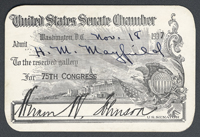 United States Senate Chamber
Washington, D.C. Nov. 18 1937
Admit H. M. Mayfield
To the reserved gallery
For 75TH CONGRESS
Hiram W. Johnson
U.S. SENATOR